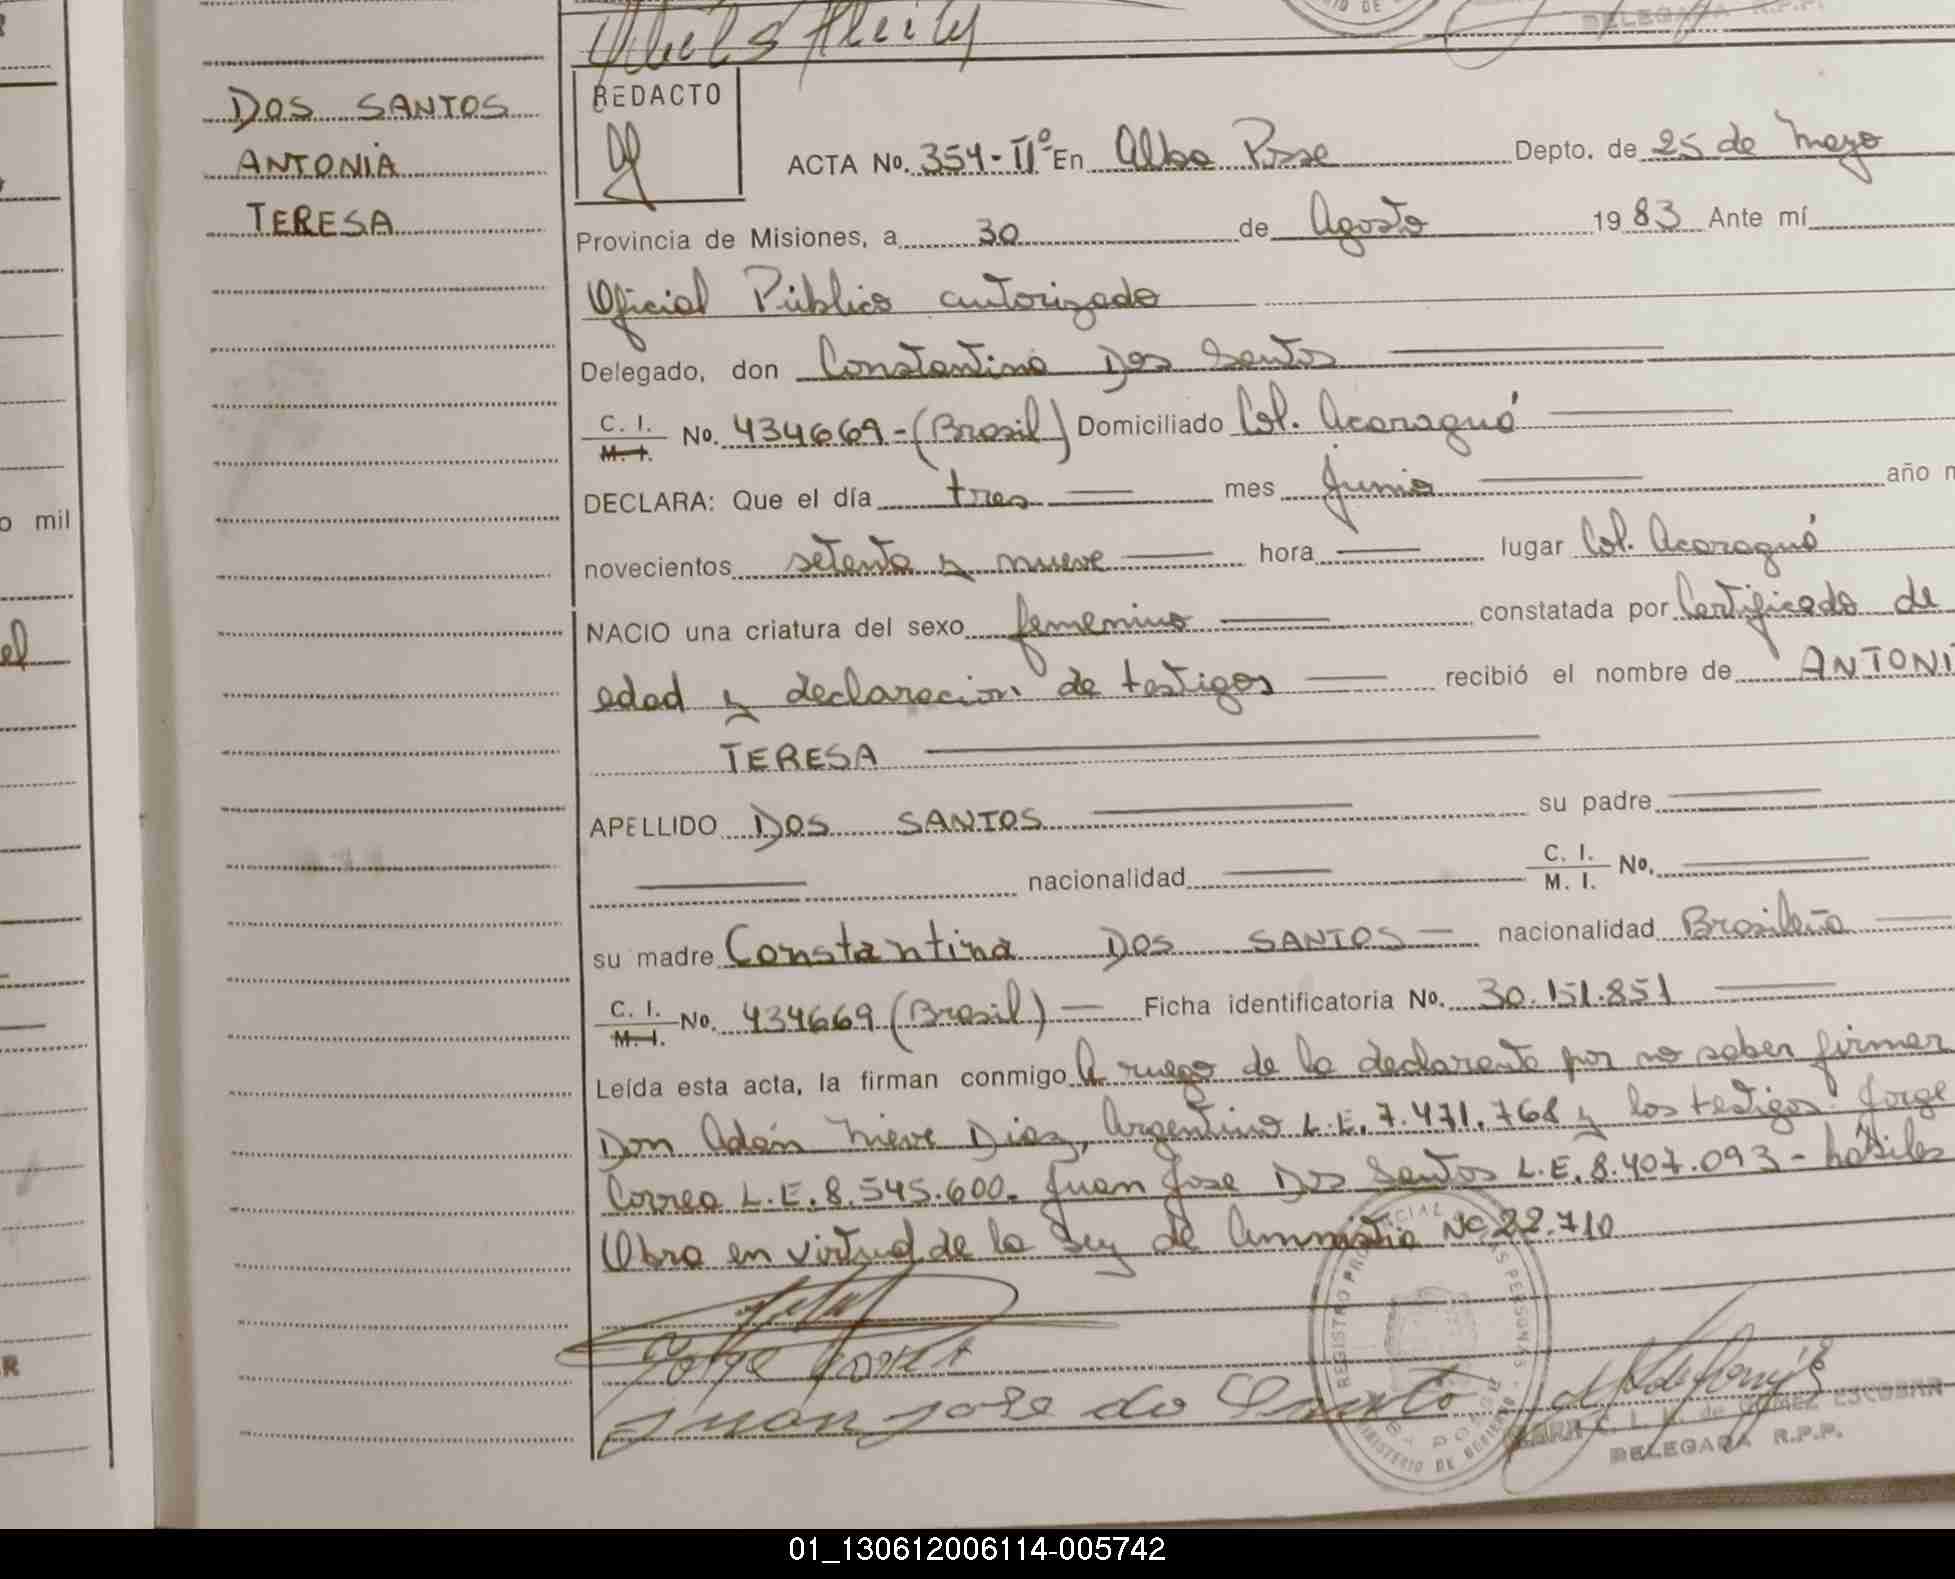 DOS SANTOS
ANTONIA
TERESA
REDACTO
ACTA No. 354-IIº En Alba Posse Depto. de 25 de Mayo
Provincia de Misiones, a 30 de Agosto 1983 Ante mí
Oficial Público autorizado
Delegado, don Constantina Dos Santos
C. I. M. I. No. 434669-(Brasil) Domiciliado Col. Acaraguá
DECLARA: Que el día tres mes Junio año
novecientos setenta y nueve hora lugar Col. Acaraguá
NACIO una criatura del sexo femenino constatada por Certificado de
edad y declaracion de testigos recibió el nombre de ANTONI
TERESA
APELLIDO DOS SANTOS su padre
nacionalidad C. I. M. I. No.
su madre Constantina DOS SANTOS nacionalidad Brasileña
C. I. M. I. No. 434669 (Brasil) Ficha identificatoria No. 30.151.851
Leída esta acta, la firman conmigo A ruego de la declarante por no saber firmar
Don Adán Nieve Diaz, Argentino L.E. 7.471.768 y los testigos Jorge
Correa L.E. 8.545.600. Juan Jose Dos Santos L.E. 8.407.093 - hábiles
Obra en virtud de la Ley de Amnistia Nº 22.710
Juan Jose do Santo
GOMEZ ESCOBAR
DELEGADA R.P.P.
o mil
el
R
01_130612006114-005742